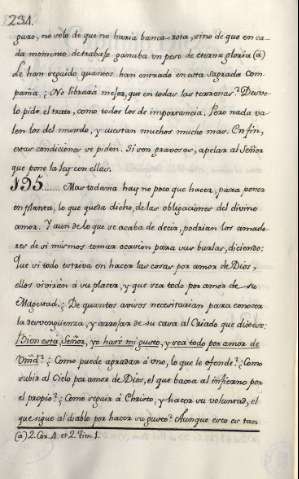 234.
guro, no solo de que no haria banca-rota, sino de que en ca-
da momento de trabajo ganaba un peso de eterna gloria (a)
Le han seguido quantos han entrado en esta sagrada Com-
pañia. ¿No libraria mejor, que en todas las tesorerias? Desvo-
lo pide el trato, como todos los de importancia. Pero nada va-
len los del mundo, y cuestan mucho mas. En fin,
estas condiciones se piden. Si son gravosas, apelar al Señor
que pone la ley con ellas.
§195...... Mas todavia hay no poco que hacer, para poner
en planta, lo que queda dicho, de las obligaciones del divino
amor. Y aun de lo que se acaba de decir, podrian los amado-
res de si mismos tomar ocasion para sus burlas, diciendo:
Que si todo estriva en hacer las cosas por amor de Dios,
ellos viviràn a su placer, y que sea todo por amor de su
Magestad. ¿De quantos avisos necesitarian para conocer
la desverguenza, y arrojar de su casa al Criado que dixese:
Bien esta, Señor, yo haré mi gusto, y sea todo por amor de
Vmd? ¿Como puede agradar à uno, lo que le ofende? ¿Como
subir al Cielo por amor de Dios, el que baxa al infierno por
el propio? ¿Como seguir à Christo, y hacer su voluntad, el
que sigue al diablo por hacer su gusto? Aunque esto es tan
(a) 2. Cor. 4. et 2. Tim. 1.